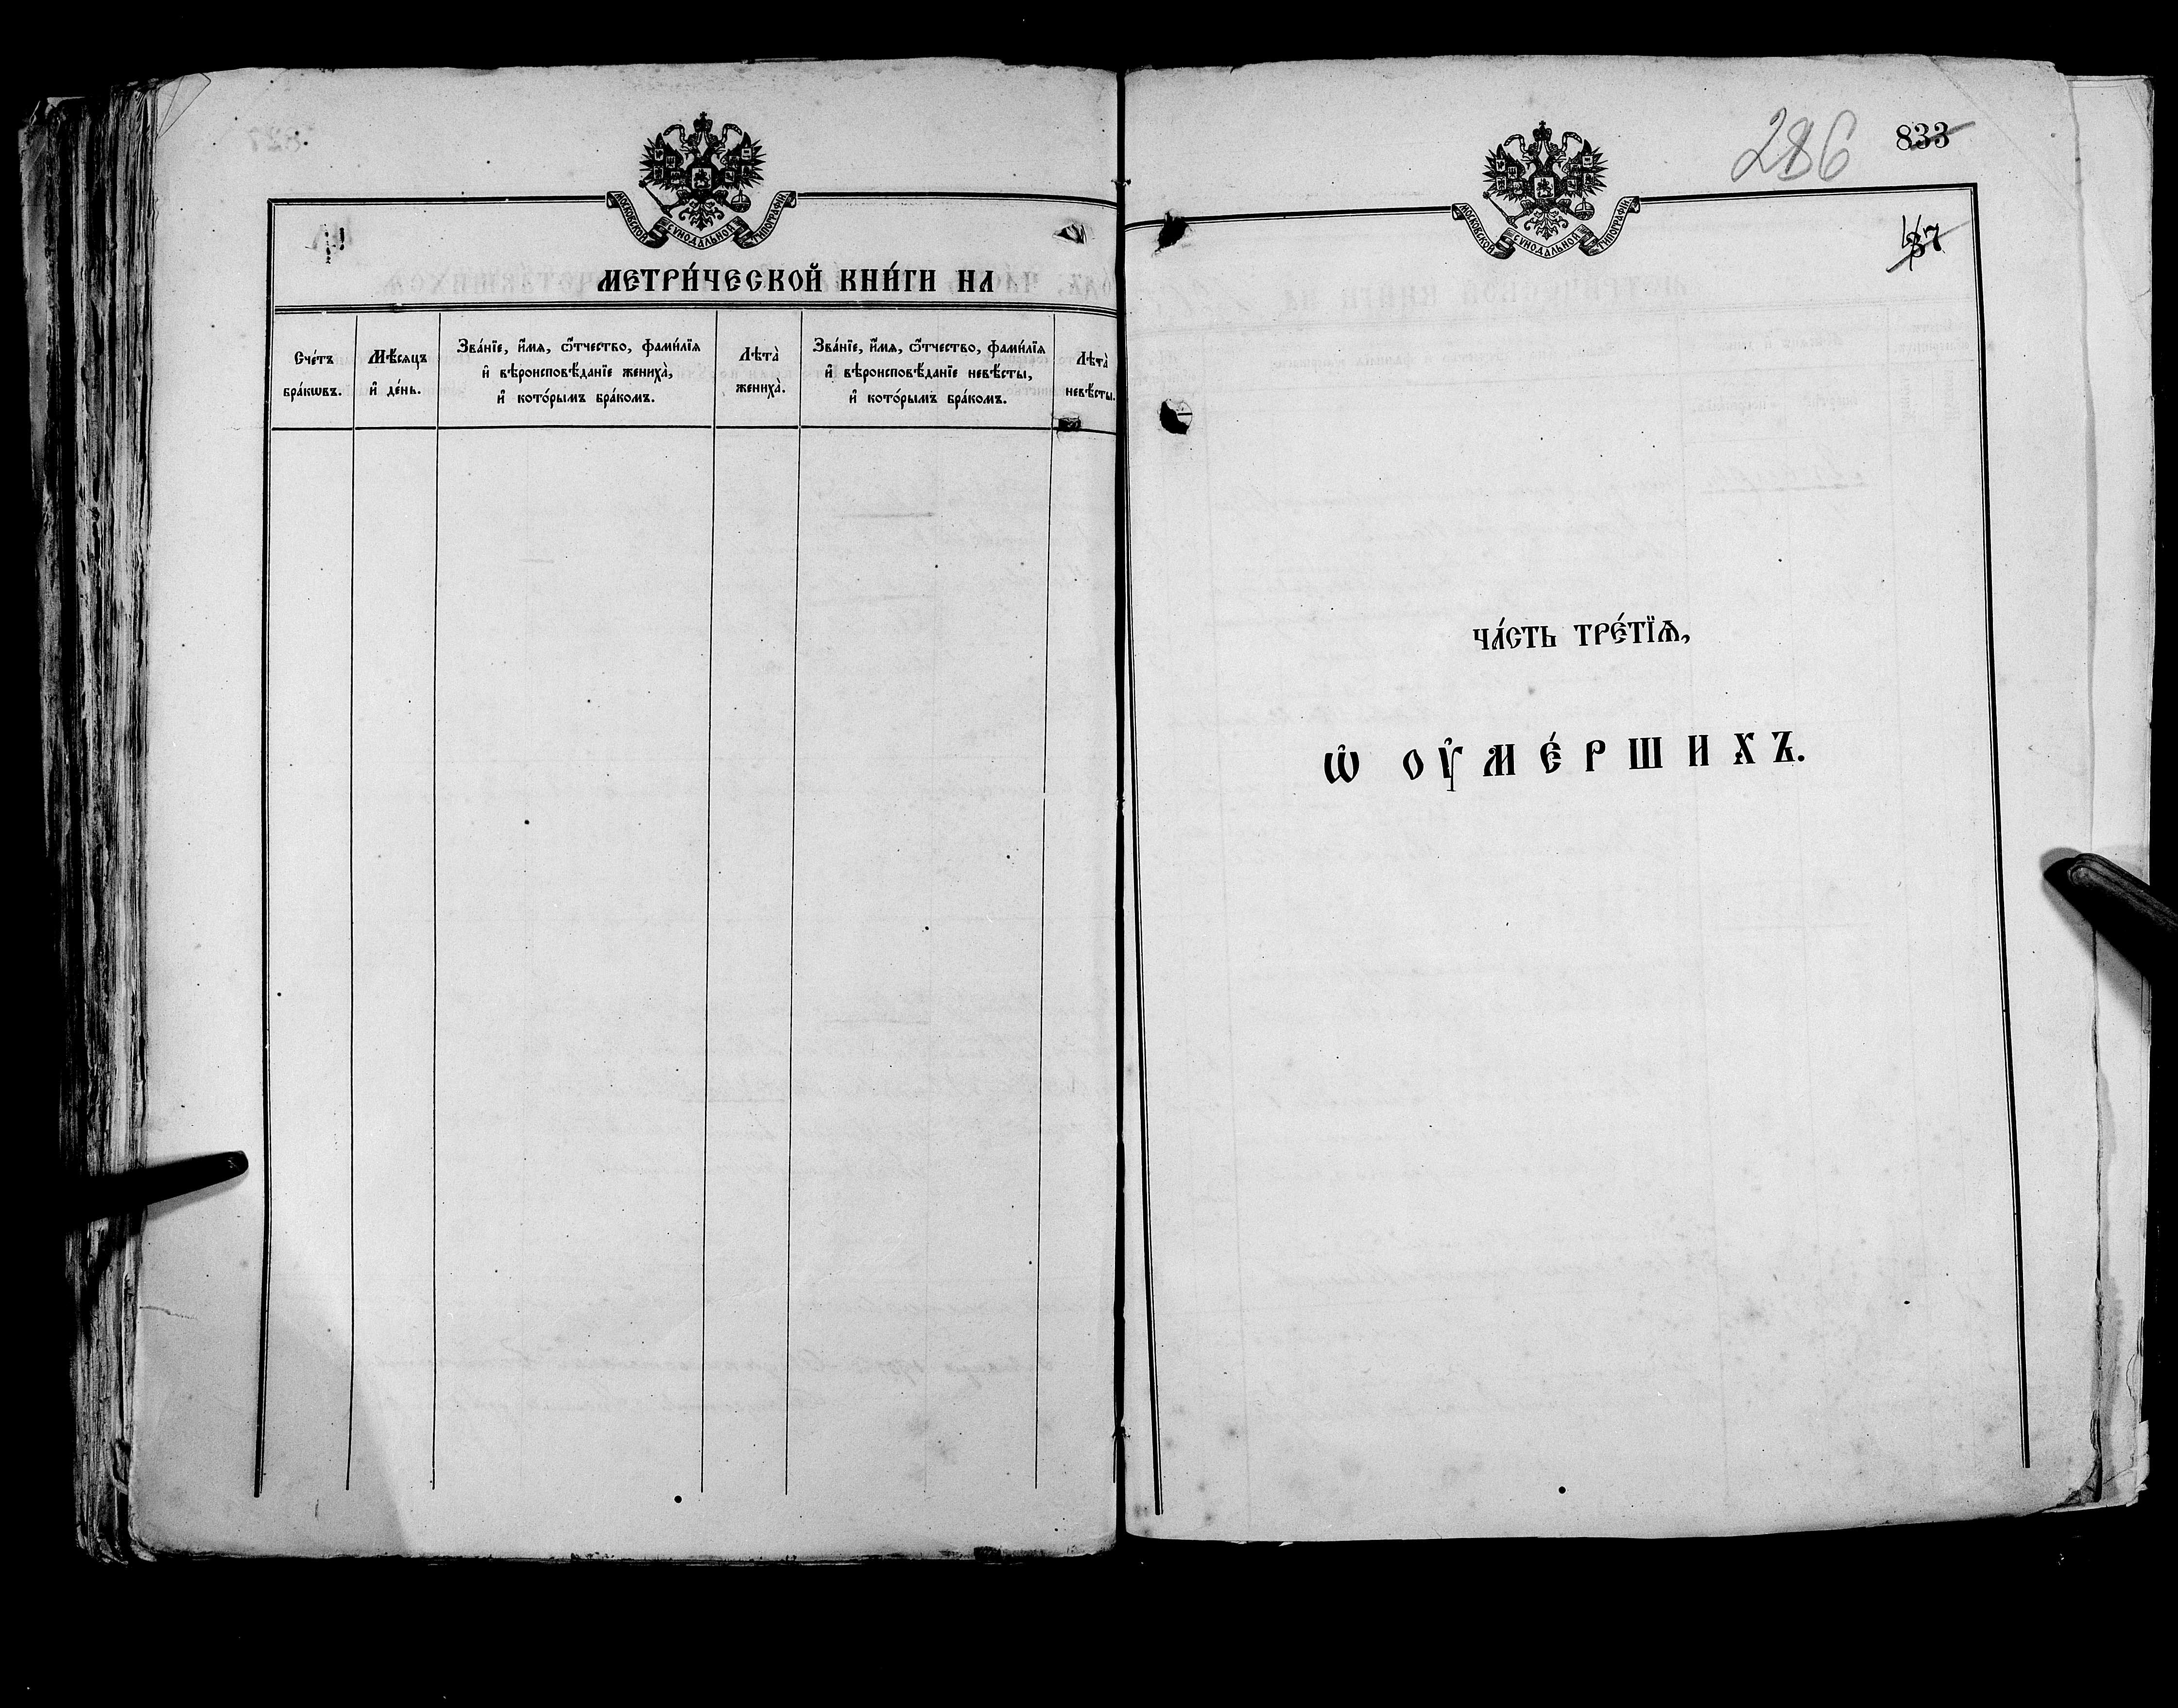 МОСКОВСКОЙ СѴНОДАЛЬНОЙ ТИПОГРАФІИ
МЕТРИ́ЧЕСКОЙ КНИ́ГИ НА
Сче́тъ бра́кѡвъ.
Мѣ́сяцъ и҆ де́нь.
Зва́нїе, и҆́мѧ, ѻ҆́тчество, фами́лїѧ
и҆ вѣроисповѣ́данїе жениха̀,
и҆ кото́рымъ бра́комъ.
Лѣта̀ жениха̀.
Зва́нїе, и҆́мѧ, ѻ҆́тчество, фами́лїѧ
и҆ вѣроисповѣ́данїе невѣ́сты,
и҆ кото́рымъ бра́комъ.
Лѣта̀ невѣ́сты.
286
833
37
МОСКОВСКОЙ СѴНОДАЛЬНОЙ ТИПОГРАФІИ
ЧА́СТЬ ТРЕ́ТЇѦ,
Ѡ҆ ОУ҆МЕ́РШИХЪ.